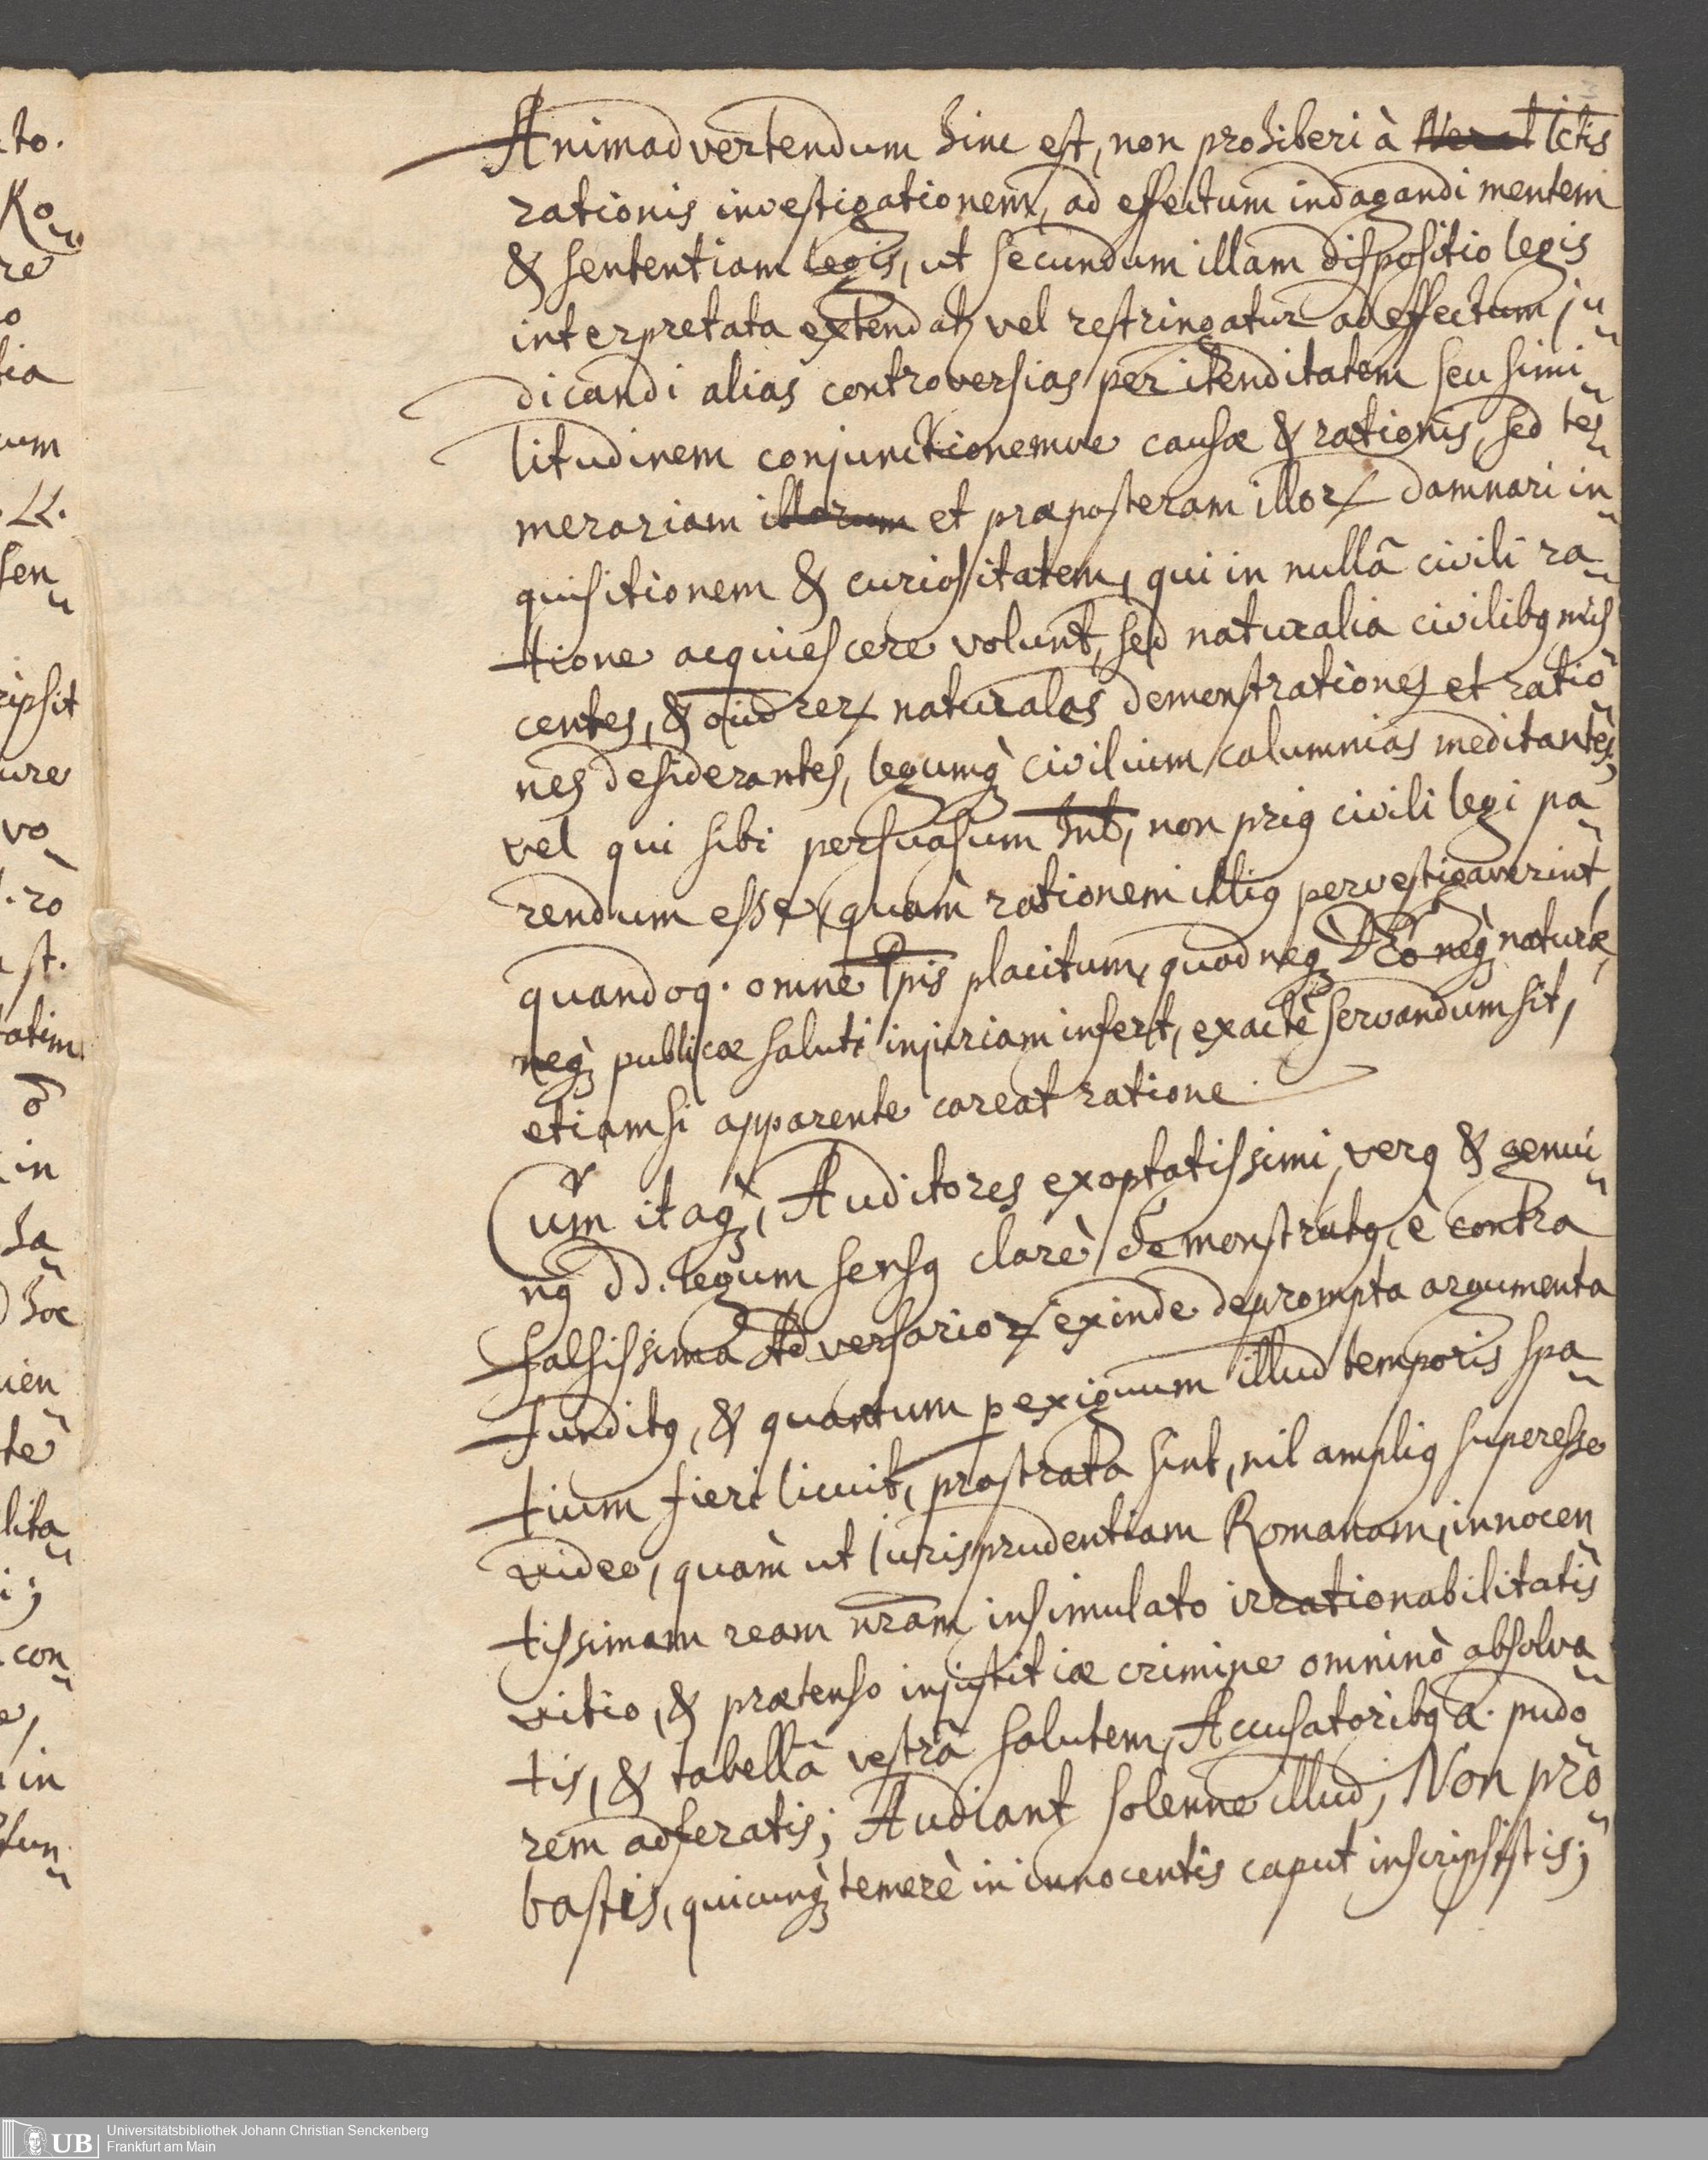 Animadvertendum hinc est, non prohiberi à Icti͞s
rationis investigationem, ad effectum indagandi mentem
& sententiam legis, ut secundum illam dispositio legis
interpretata extendatꝫ vel restringatur ad effectum ju-
dicandi alias controversias per itenditatem seu simi-
litudinem conjunctionemve causæ & rationis, sed te-
merariam illorum et præposteram illoꝝ damnari in-
quisitionem & curiositatem, qui in nullâ civili ra-
tione acquiescere volunt, sed naturalia civilibꝰ mis
centes, & reꝝ naturales demonstrationes et ratio-
nes desiderantes, legumqꝫ civilium calumnias meditantes;
vel qui sibi persuasum hnt, non priꝰ civili legi pa-
rendum esse, quàm rationem illiꝰ pervestigaverint,
quandoq. omne Ppis placitum, quod neqꝫ DEo neqꝫ naturæ,
neqꝫ publicæ saluti injuriam infert, exactè servandum sit,
etiamsi apparente careat ratione.
Cum itaqꝫ, Auditores exoptatissimi, verꝰ & genui-
nꝰ dd. legum sensꝰ clarè demonstratꝰ, è contra
falsissima Adversarioꝝ exinde deprompta argumenta
funditꝰ, & quantum p exiguum illud temporis spa-
tium fieri licuit, prostrata sint, nil ampliꝰ superesse
video, quàm ut Jurisprudentiam Romanam, innocen-
tissimam ream nram, insimulato irrationabilitatis
vitio, & prætenso injustitiæ crimine omninò absolva-
tis, & tabellâ vestrâ salutem, Accusatoribꝰ a. pudo-
rem adferatis; Audiant solenne illud, Non pro-
bastis, quicunqꝫ temerè in innocentis caput inscripsistis;
to.
Ko-
re
o
tia
cum
LL.
sen-
ripsit
ure
vo-
ro
st.
tatim
õ
in
ha-
hoc
uen-
te
lita-
i;
con-
e,
in
fun-
UB
Universitätsbibliothek Johann Christian Senckenberg
Frankfurt am Main